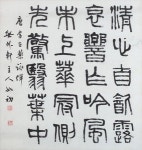 清心自飲露
哀響乍吟風
未上華冠側
先驚翳葉中
唐李百藥詠蟬
軒主人